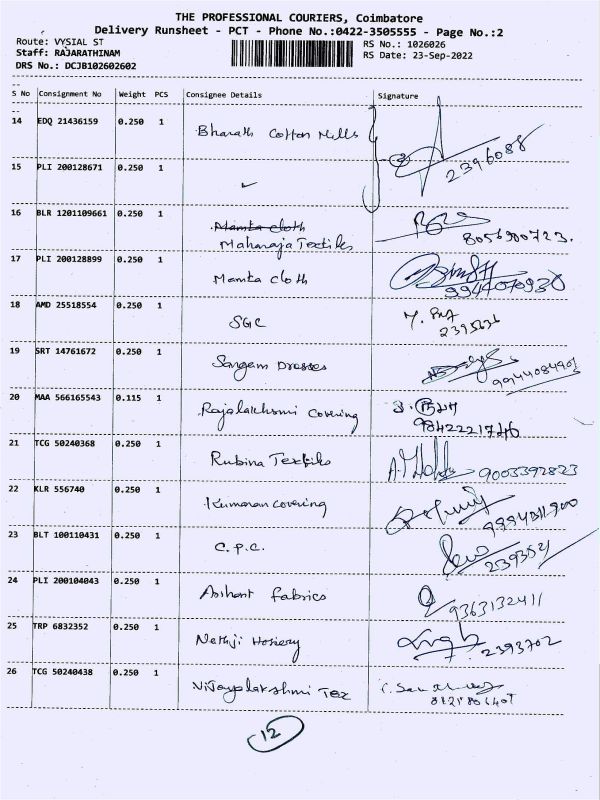 THE PROFESSIONAL COURIERS, Coimbatore
Delivery Runsheet - PCT - Phone No.:0422-3505555 - Page No.:2
Route: VYSIAL ST
RS No.: 1026026
Staff: RAJARATHINAM
RS Date: 23-Sep-2022
DRS No.: DCJB102602602
S No Consignment No Weight PCS Consignee Details Signature
14 EDQ 21436159 0.250 1 Bharath Cotton Mills 2396088
15 PLI 200128671 0.250 1
16 BLR 1201109661 0.250 1 Mamta cloth
Maharaja Textiles 8056900723.
17 PLI 200128899 0.250 1 Mamta cloth 9947070930
18 AMD 25518554 0.250 1 SGC
19 SRT 14761672 0.250 1 Sangam Dresses 9944084903
20 MAA 566165543 0.115 1 Rajalakhsmi Covering
9842221746
21 TCG 50240368 0.250 1 Rubina Textiles 9003392823
22 KLR 556740 0.250 1 Kumaran covering
23 BLT 100110431 0.250 1 C.P.C.
24 PLI 200104043 0.250 1 Arihant fabrics 9363132411
25 TRP 6832352 0.250 1 Nethji Hosiery 2393702
26 TCG 50240438 0.250 1 Vijayalakshmi Tex
12